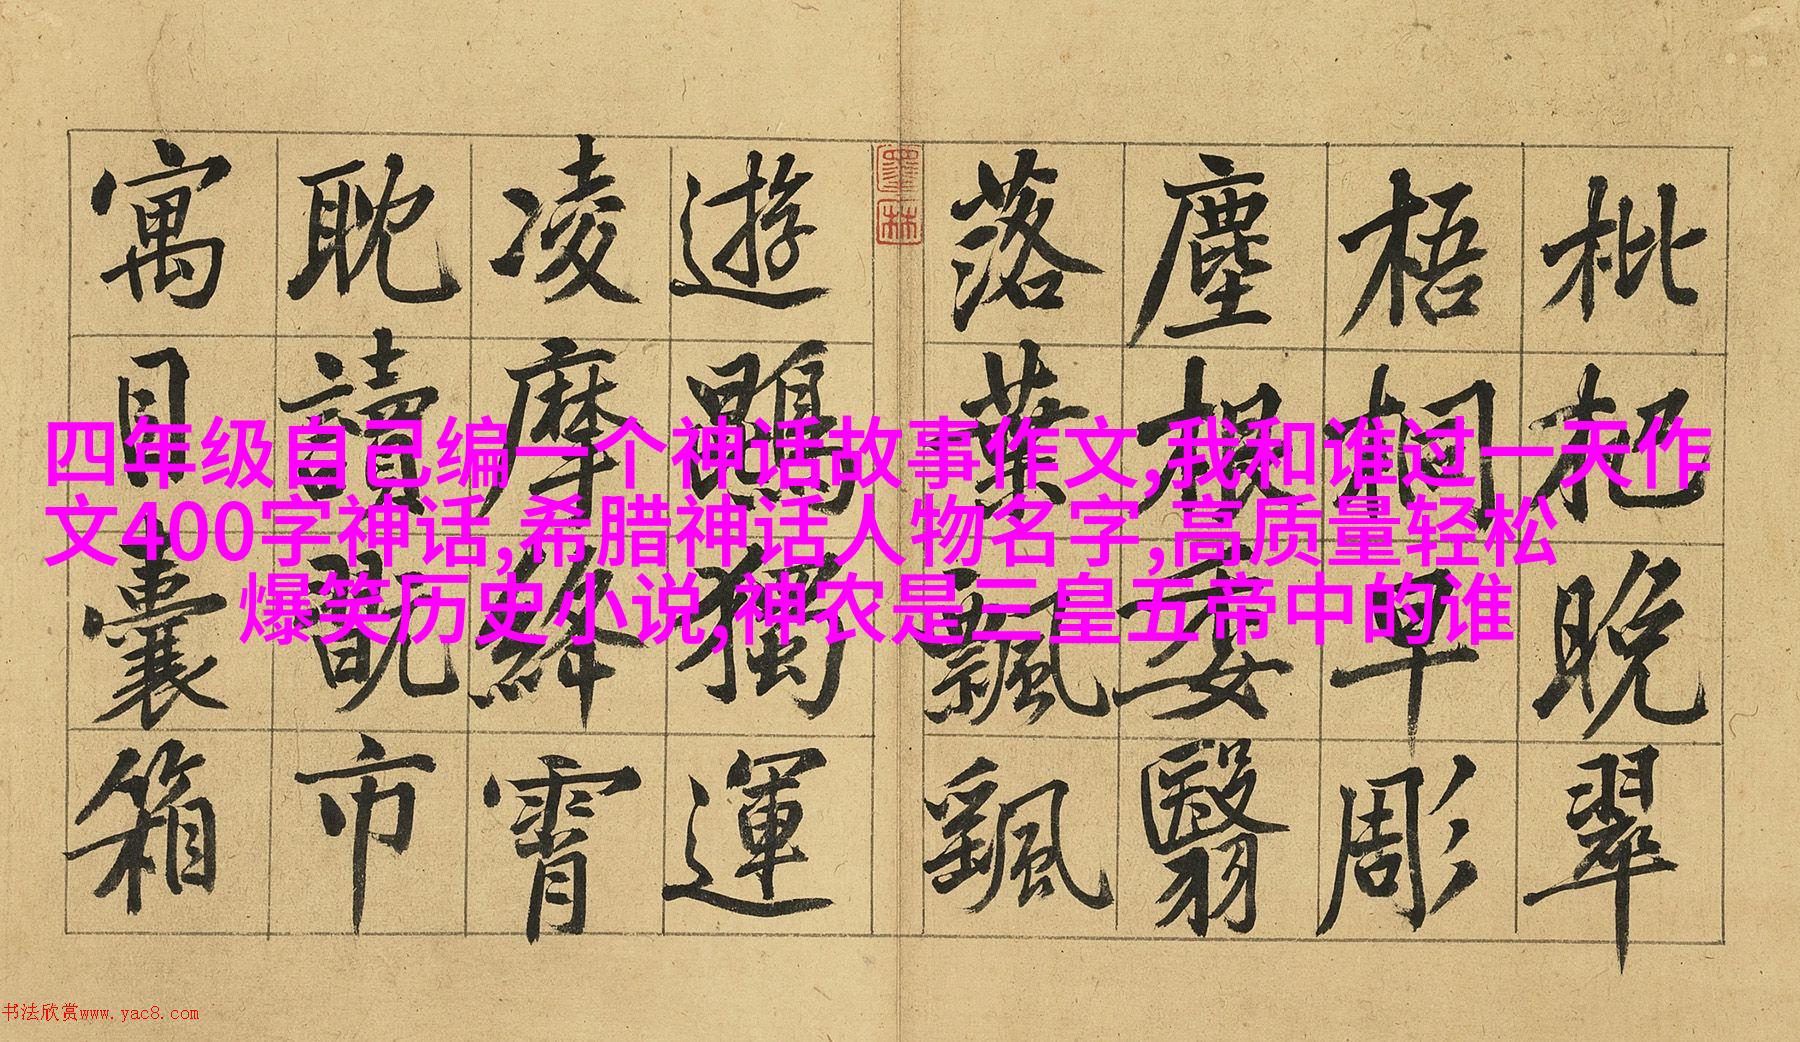 枇杷晚翠
梧桐早彫
塵根委翳
落葉飄飖
墨林
遊鵾獨運
凌摩絳霄
耽讀翫市
寓目囊箱
四年级自己编一个神话故事作文,我和谁过一天作
文400字神话,希腊神话人物名字,高质量轻松
爆笑历史小说,神农是三皇五帝中的谁
书法欣赏www.yac8.com